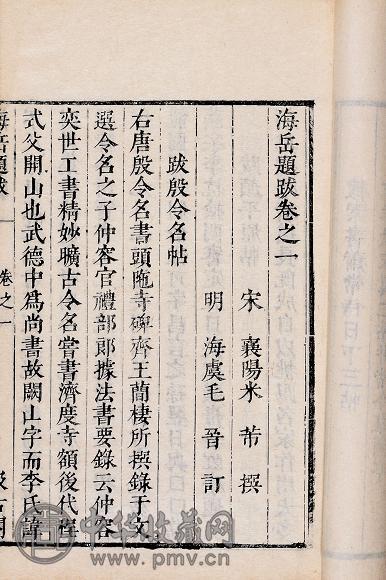 海岳題跋卷之一
宋 襄陽米 芾 撰
明 海虞毛 晉 訂
跋殷令名帖
右唐殷令名書頭陁寺碑齊王簡棲所撰錄于文
選令名之子仲容官禮部郎據法書要錄云仲容
奕世工書精妙曠古令名嘗書濟度寺額後代程
式父開山也武德中爲尚書故闕山字而李氏諱
海岳題跋 卷之一
中华收藏网
www.pmv.cn